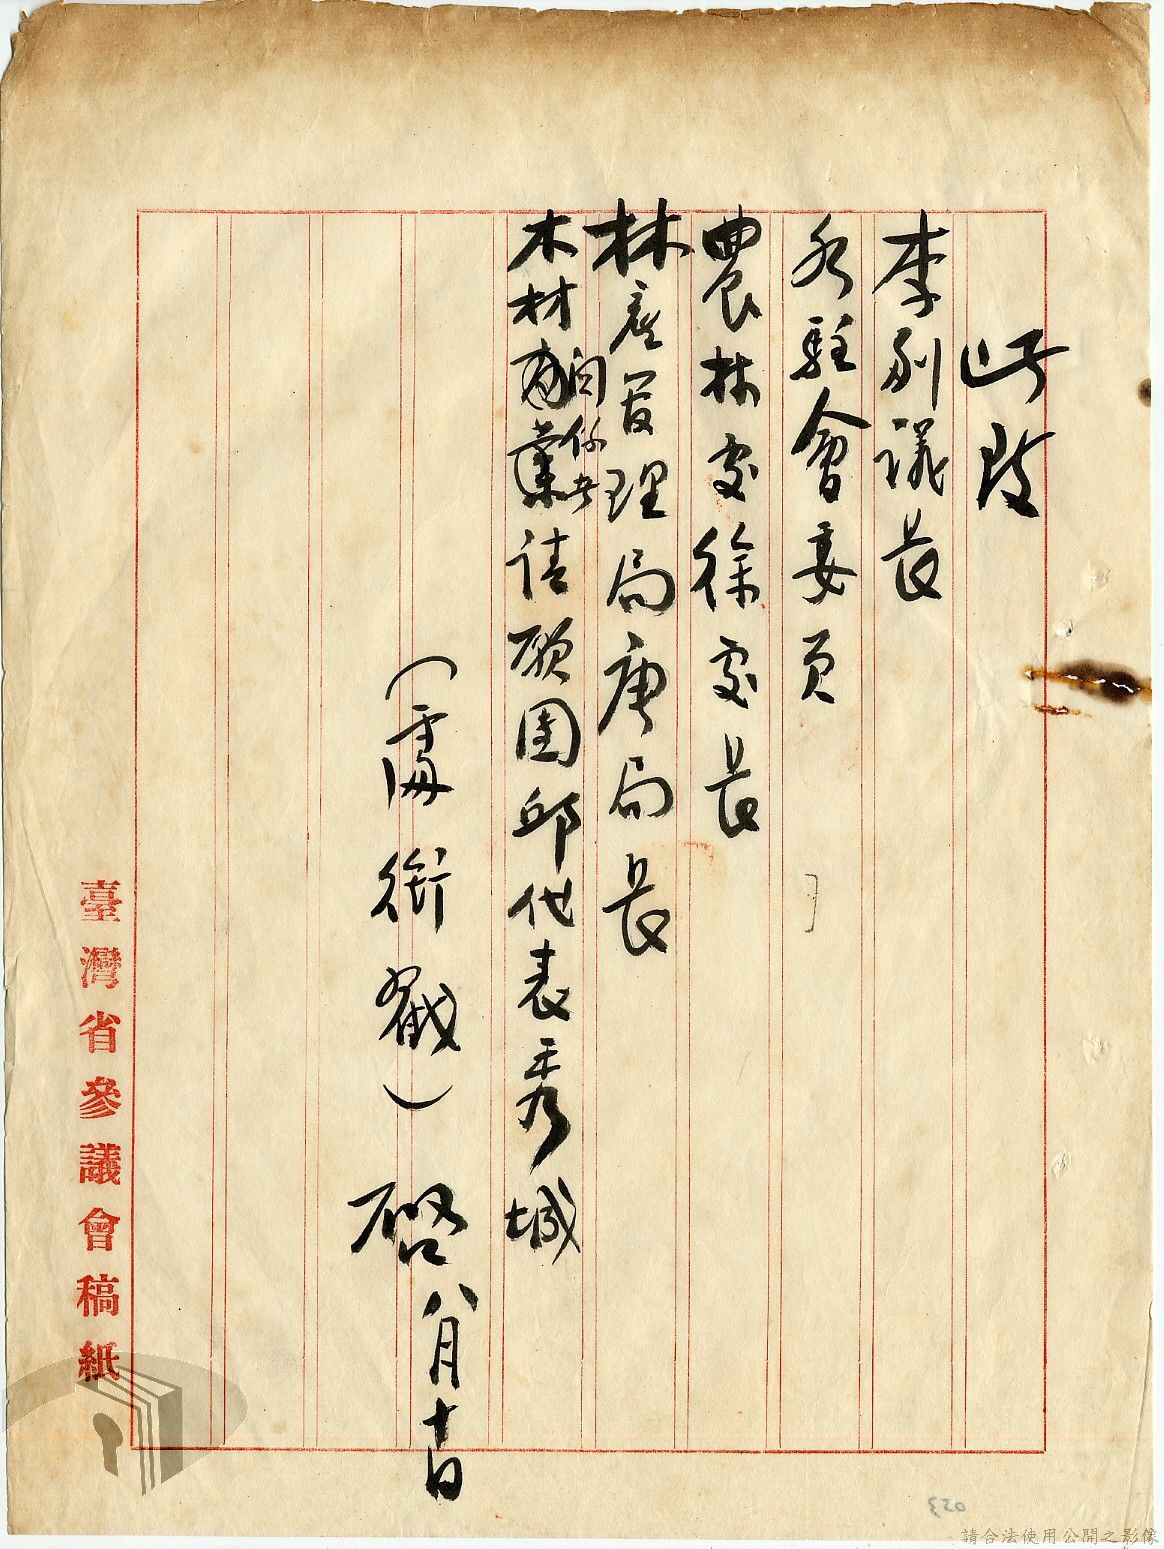 此致
李副議長
各駐會委員
農林處徐處長
林產管理局唐局長
木材商業関係者請願團邱代表秀城
(銜戳)啓 八月十日
臺灣省參議會稿紙
請合法使用公開之影像